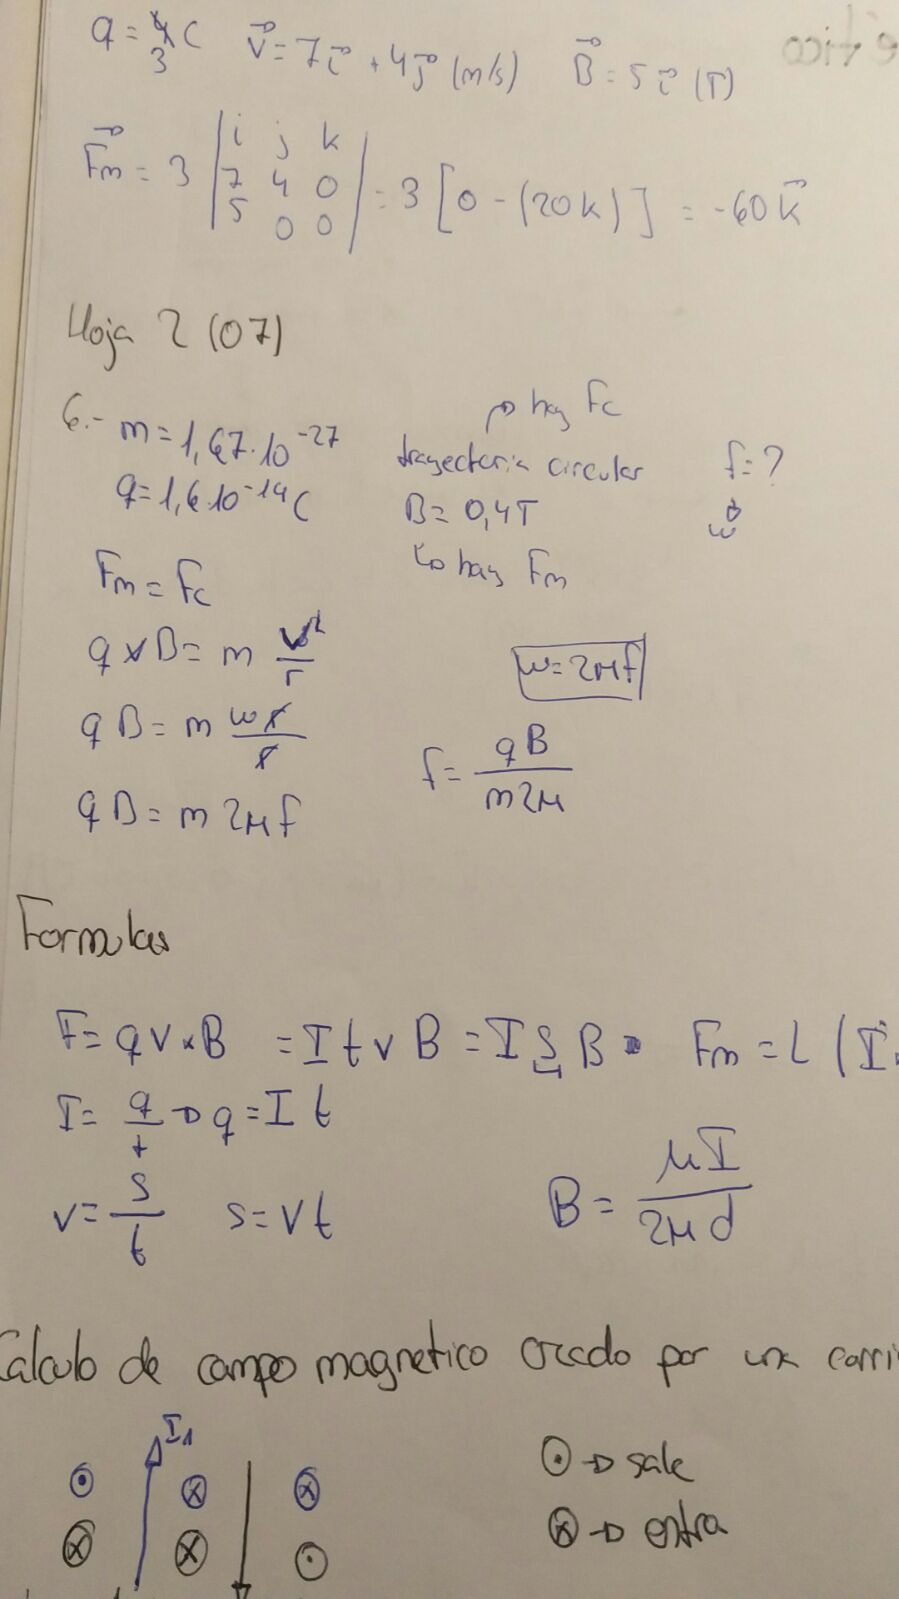 q = 3 C v⃗ = 7i⃗ + 4j⃗ (m/s) B⃗ = 5i⃗ (T)
F⃗m = 3 | i j k | 7 4 0 | 5 0 0 | = 3 [0 - (20k)] = -60k⃗
Hoja 2 (07)
6.- m = 1,67·10^-27
→ hay Fc
trayectoria circular f = ?
q = 1,6·10^-19 C B = 0,4T ↓ w
↳ hay Fm
Fm = Fc
q v B = m v²/r w = 2πf
q B = m w r/r f = qB/m2π
q B = m 2π f
Formulas
F = q v × B = I t v B = I S B Fm = L (I
I = q/t → q = I t
v = s/t s = v t B = μI/2πd
Calculo de campo magnetico creado por una corri
I1
⊙ ⊗ ⊗ ⊙ → sale
⊗ ⊗ ⊙ ⊗ → entra